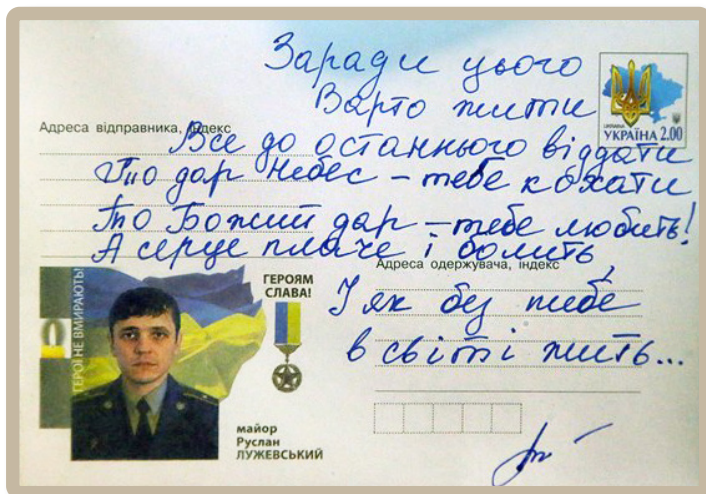 Заради цього
Варто жити
УКРАЇНА 2.00
Адреса відправника, індекс
Все до останнього віддати
То дар Небес – тебе кохати
То Божий дар – тебе любить!
А серце плаче і болить,
Адреса одержувача, індекс
І як без тебе
в світі жить...
ГЕРОЯМ
СЛАВА!
ГЕРОЇ НЕ ВМИРАЮТЬ!
майор
Руслан
ЛУЖЕВСЬКИЙ